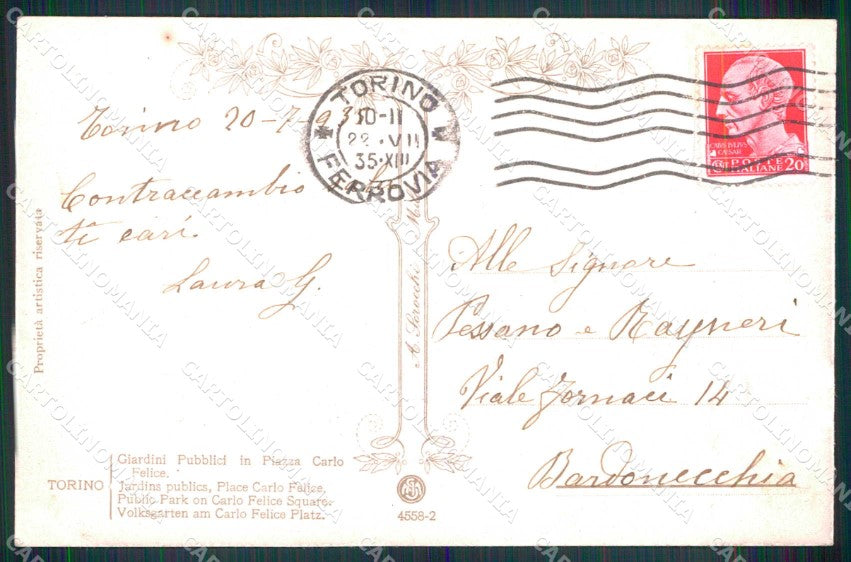 Torino 20-7-935
Contraccambio
ti cari.
Laura G.
TORINO
10-11
22 . VII
35-XIII
FERROVIA
CAIVS IVLIVS
CAESAR
POSTE
ITALIANE 20
Alle Signore
Pessano e Rayneri
Viale Fornaci 14
Bardonecchia
Proprietà artistica riservata
TORINO
Giardini Pubblici in Piazza Carlo
Felice.
Jardins publics, Place Carlo Felice.
Public Park on Carlo Felice Square.
Volksgarten am Carlo Felice Platz.
4558-2
CARTOLINOMANIA